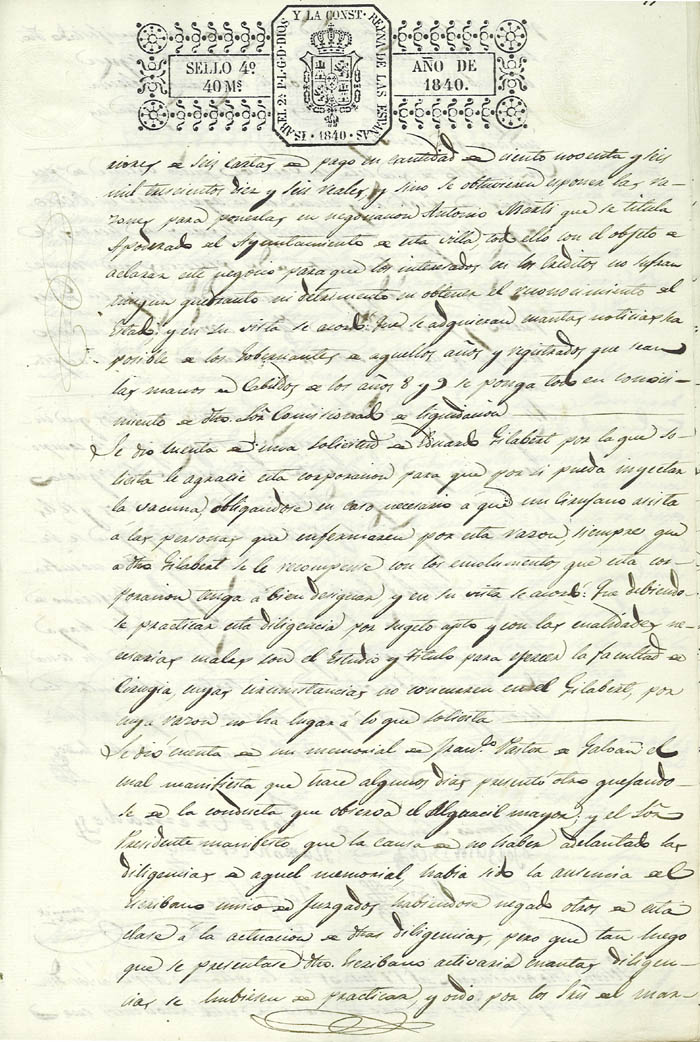 SELLO 4º
40 Mˢ
ISABEL 2ª P. L. G. D. DIOS Y LA CONST. REYNA DE LAS ESPAÑAS
· 1840 ·
AÑO DE
1840.
de seis cartas de pago en cantidad de ciento noventa y seis
mil trescientos diez y seis reales, y sino se obtuvieren esponer las ra-
zones para ponerlas en negociacion Antonio Martí que se titula
Apoderado del Ayuntamiento de esta villa todo ello con el objeto de
aclarar este negocio para que los interesados en los Creditos no sufran
ningun quebranto ni detrimento en obtener el reconocimiento del
Estado: y en su vista se acordó: Que se adquieran cuantas noticias sea
posible de los Gobernantes de aquellos años y registrados que sean
las manos de Cabildos de los años 8 y 9 se ponga todo en conoci-
miento de dho. Sõr Comisionado de liquidacion
Se dio cuenta de una solicitud de Eduardo Gilabert por la que so-
licita le agracie esta corporacion para que por si pueda inyectar
la vacuna, obligandose en caso necesario a que un Cirujano asista
á las personas que enfermaren por esta razon, siempre que
á dho Gilabert se le recompense con los emolumentos que esta cor-
poracion tenga á bien designar y en su vista se acordó: Que debiendo
se practicar esta diligencia por sugeto apto y con las cualidades ne-
cesarias cuales son el Estudio y titulo para ejercer la facultad de
Cirugia, cuyas circunstancias no concurren en el Gilabert, por
cuya razon no ha lugar á lo que solicita
Se dió cuenta de un memorial de Fran.ᶜᵒ Pastor de Galvañ el
cual manifiesta que hace algunos dias presentó otro quejando-
se de la conducta que observa el Alguacil mayor; y el Sõr
Presidente manifestó que la causa de no haber adelantado las
diligencias de aquel memorial, habia sido la ausencia del
Escribano unico de Juzgados habiendose negado otros de esta
clase á la actuacion de dhas diligencias, pero que tan luego
que se presentase dho. Escribano activaria cuantas diligen-
cias se hubiesen de practicar, y oido por los Sʳᵉˢ del mar-